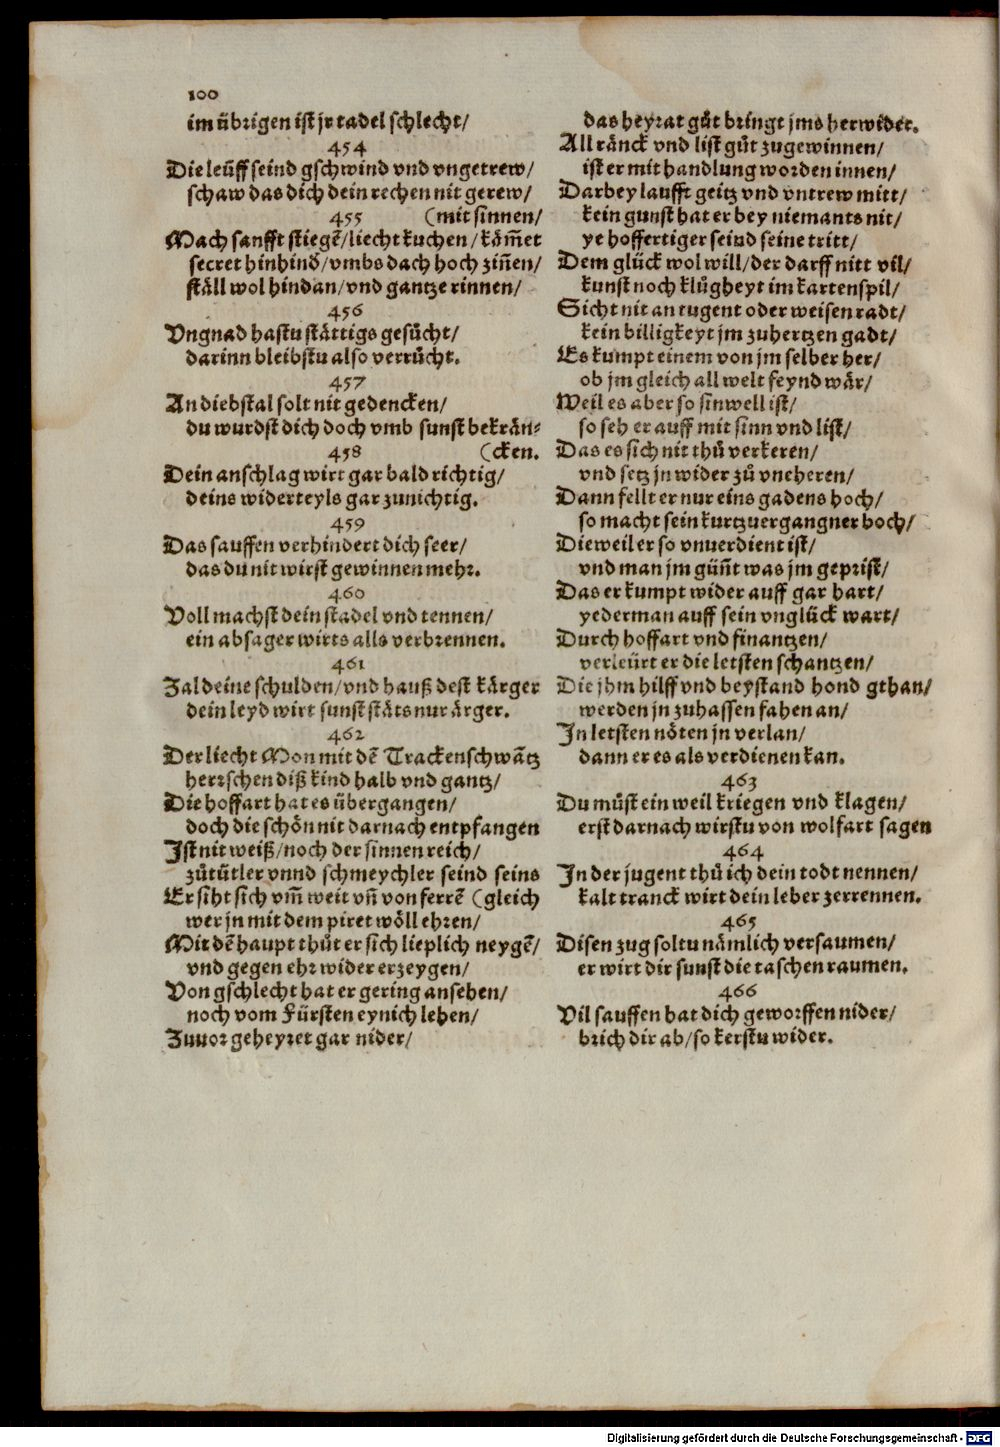 100
im übrigen ist jr tadel schlecht/
454
Die leüff seind gschwind vnd vngetrew/
schaw das dich dein rechen nit gerew/
455 (mit sinnen/
Mach sanfft stiegē/liecht kuchen/kām̃et
secret hinhind/vmbs dach hoch ziñen/
ställ wol hindan/vnd gantze rinnen/
456
Vngnad hastu stättigs gesücht/
darinn bleibstu also verrücht.
457
An diebstal solt nit gedencken/
du wurdst dich doch vmb sunst bekrän⸗
458 (cken.
Dein anschlag wirt gar bald richtig/
deins widerteyls gar zunichtig.
459
Das sauffen verhindert dich seer/
das du nit wirst gewinnen mehr.
460
Voll machst dein stadel vnd tennen/
ein absager wirts alls verbrennen.
461
Zal deine schulden/vnd hauß dest kärger
dein leyd wirt sunst stäts nur ärger.
462
Der liecht Mon mit dē Trackenschwātz
herrschen diß kind halb vnd gantz/
Die hoffart hat es übergangen/
doch die schön nit darnach entpfangen
Ist nit weiß/noch der sinnen reich/
zůtütler vnnd schmeychler seind seins
Er siht sich vm̃ weit vñ von ferrē (gleich
wer jn mit dem piret wöll ehren/
Mit dē haupt thůt er sich lieplich neygē/
vnd gegen ehr wider erzeygen/
Von gschlecht hat er gering ansehen/
noch vom Fürsten eynich lehen/
Zuuor geheyret gar nider/
das heyrat gůt bringt jms herwider.
All ränck vnd list gůt zugewinnen/
ist er mit handlung worden innen/
Darbey laufft geitz vnd vntrew mitt/
kein gunst hat er bey niemants nit/
ye hoffertiger seind seine tritt/
Dem glück wol will/der darff nitt vil/
kunst noch klůgheyt im kartenspil/
Sicht nit an tugent oder weisen radt/
kein billigkeyt jm zuhertzen gadt/
Es kumpt einem von jm selber her/
ob jm gleich all welt feynd wär/
Weil es aber so sinwell ist/
so seh er auff mit sinn vnd list/
Das es sich nit thů verkeren/
vnd setz jn wider zů vneheren/
Dann fellt er nur eins gadens hoch/
so macht sein kurtzuergangner boch/
Dieweil er so vnuerdient ist/
vnd man jm güñt was jm geprist/
Das er kumpt wider auff gar hart/
yederman auff sein vnglück wart/
Durch hoffart vnd finantzen/
verleürt er die letsten schantzen/
Die jhm hilff vnd beystand hond gthan/
werden jn zuhassen fahen an/
In letsten nöten jn verlan/
dann er es als verdienen kan.
463
Du můst ein weil kriegen vnd klagen/
erst darnach wirstu von wolfart sagen
464
In der jugent thů ich dein todt nennen/
kalt tranck wirt dein leber zerrennen.
465
Disen zug soltu nämlich versaumen/
er wirt dir sunst die taschen raumen.
466
Vil sauffen hat dich geworffen nider/
brich dir ab/so kerstu wider.
Digitalisierung gefördert durch die Deutsche Forschungsgemeinschaft - DFG